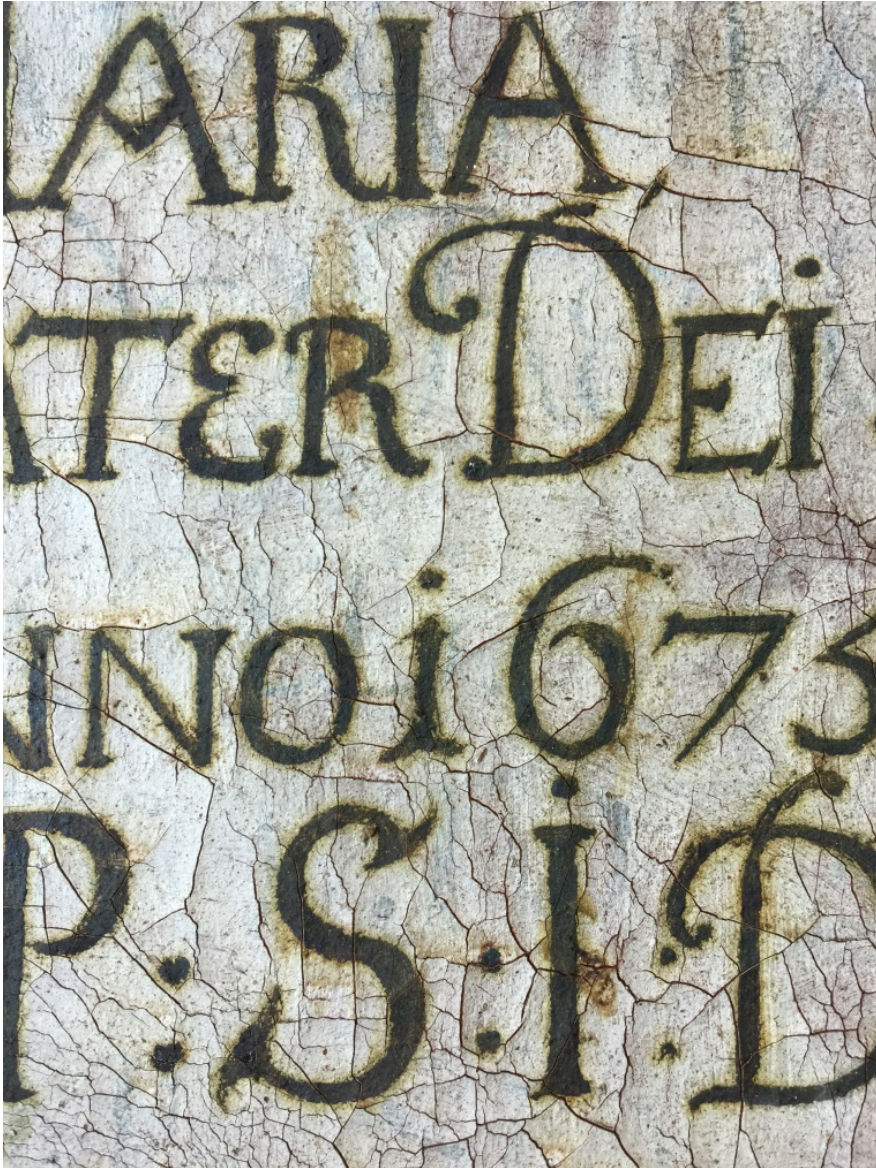 MARIA
ATER DEi
NNO i673
P : S : i : D